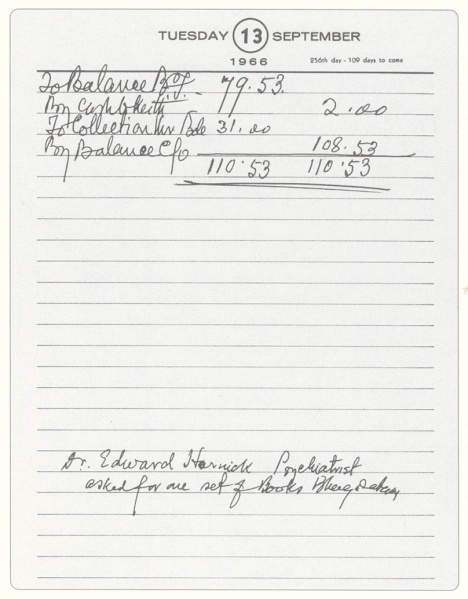 TUESDAY 13 SEPTEMBER
1966 256th day - 109 days to come
To Balance B/F. 79.53.
By Cash to Keith 2.00
To Collection 31.00
By Balance C/o 108.53
110.53 110.53
Dr. Edward Hornick Psychiatrist
asked for one set of Books